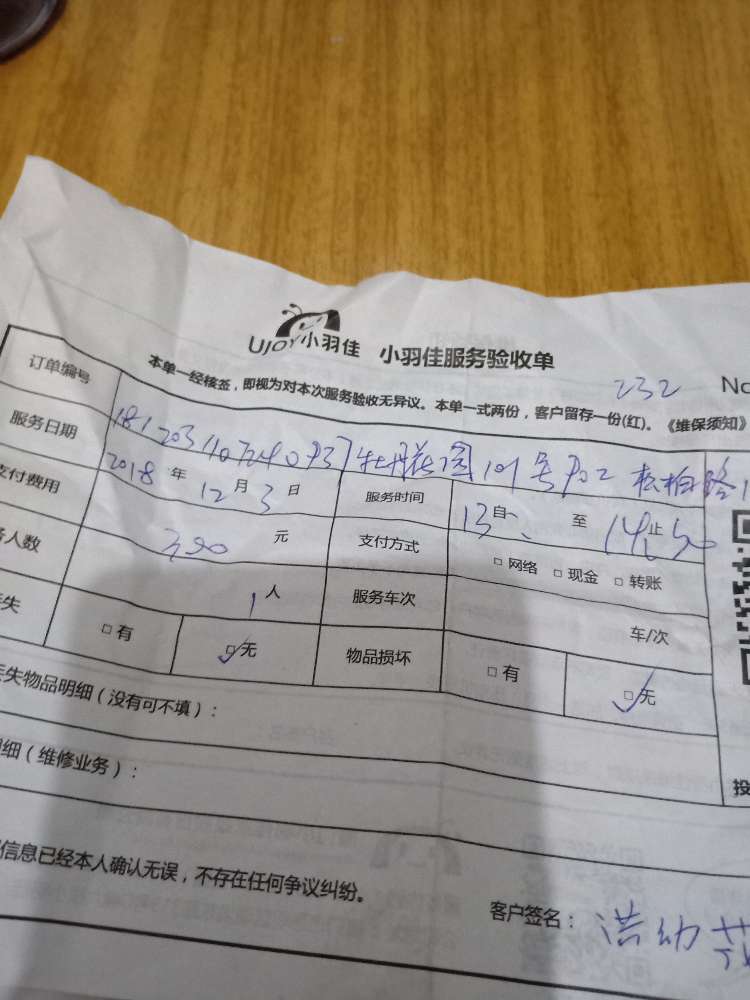 UJOY小羽佳 小羽佳服务验收单
232 No
本单一经核签，即视为对本次服务验收无异议。本单一式两份，客户留存一份(红)。《维保须知》
订单编号 牡丹花园101号702 松柏路
服务日期 2018年12月3日 服务时间 自13 至14:50止
支付费用 元 支付方式 □ 网络 □ 现金 □ 转账
人数 1人 服务车次 车/次
失 □ 有 □ 无 物品损坏 □ 有 □ 无
失物品明细（没有可不填）：
细（维修业务）：
信息已经本人确认无误，不存在任何争议纠纷。
客户签名：洪幼
投